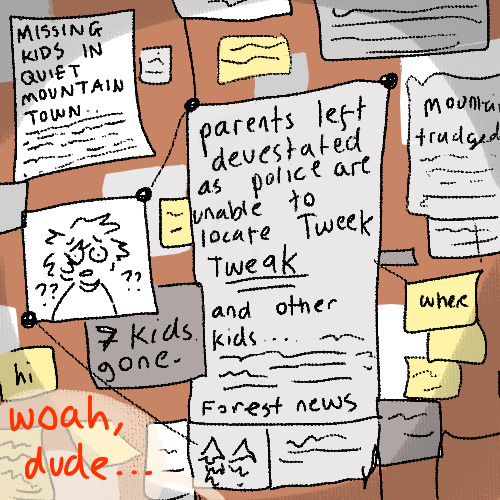 MISSING
KIDS IN
QUIET
MOUNTAIN
TOWN..
parents left
devestated
as police are
unable to
locate Tweek
Tweak
and other
kids....
Forest news
mountai
trudged
where
?? ??
7 kids
gone.
hi
woah,
dude...